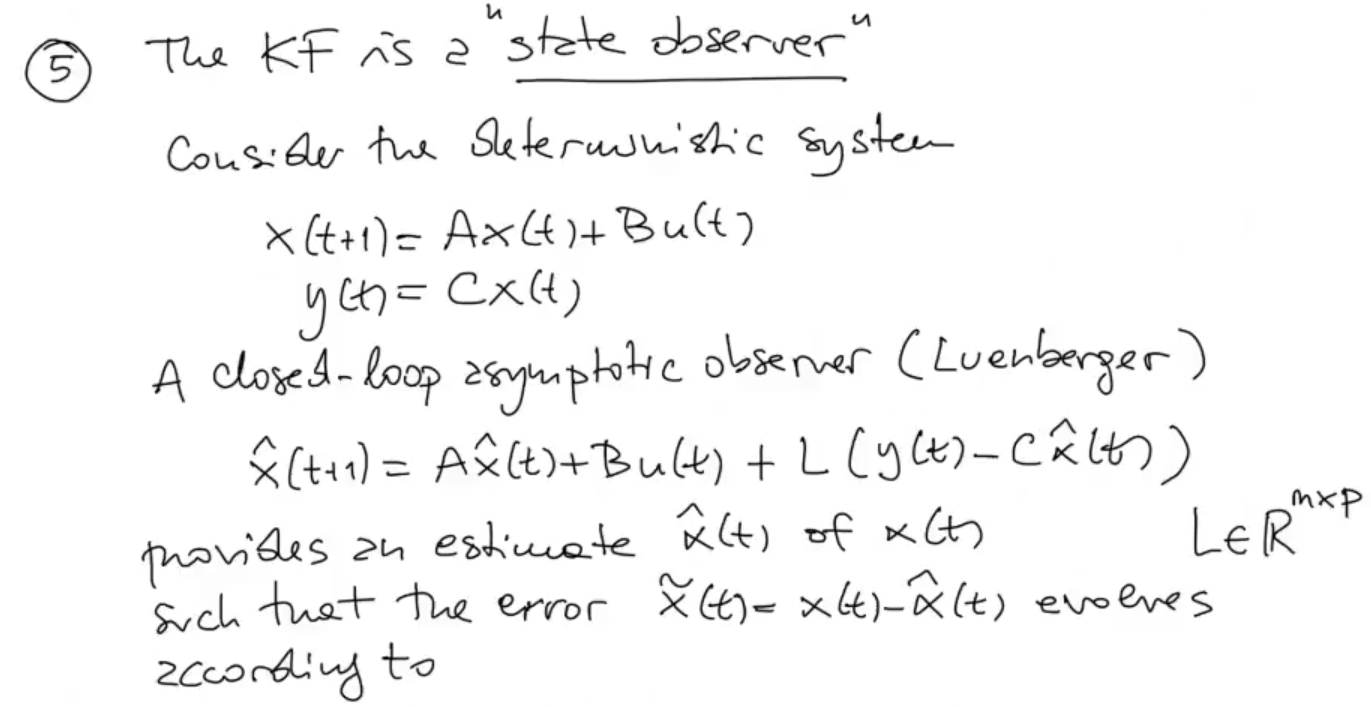 ⑤ The KF is a "state observer"
Consider the deterministic system
x(t+1) = Ax(t) + Bu(t)
y(t) = Cx(t)
A closed-loop asymptotic observer (Luenberger)
x̂(t+1) = Ax̂(t) + Bu(t) + L(y(t) - Cx̂(t))
provides an estimate x̂(t) of x(t) L∈ℝ^{n×p}
such that the error x̃(t) = x(t) - x̂(t) evolves
according to